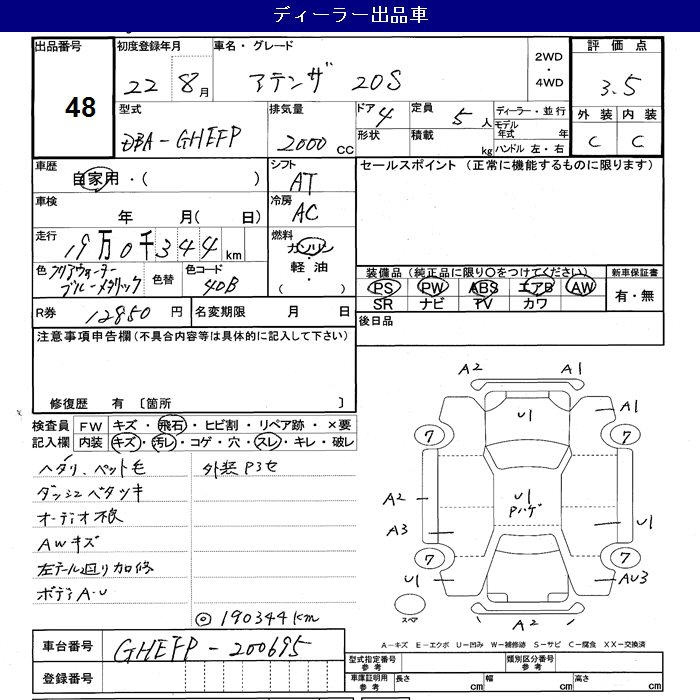 ディーラー出品車
出品番号 初度登録年月 車名・グレード 2WD・4WD 評価点
48 22 8月 アテンザ 20S 3.5
型式 排気量 ドア 4 定員 5人 ディーラー・並行 外装 内装
DBA-GHEFP 2000CC 形状 積載 kg モデル年式 年 C C
ハンドル 左・右
車歴 シフト セールスポイント (正常に機能するものに限ります)
自家用・( ) AT
車検 冷房
年 月( 日) AC
走行 燃料
19万0千344km ガソリン・軽油・( )
色 クリアウォーターブルーメタリック 色替 色コード 40B
装備品(純正品に限り○をつけてください) 新車保証書
PS PW ABS エアB AW 有・無
SR ナビ TV カワ
R券 12850円 名変期限 月 日 後日品
注意事項申告欄(不具合内容等は具体的に記入して下さい)
修復歴 有 〔箇所 〕
検査員 FW キズ・飛石・ヒビ割・リペア跡・×要
記入欄 内装 キズ・汚レ・コゲ・穴・スレ・キレ・破レ
ヘタリ、ペット毛 外装Pヨセ
ダッシュベタツキ
オーディオ不良
AWキズ
左テール廻り加修
ボディA・U
◎190344km
A2 A1
U1 A1
7 7
A2 U1 Pハゲ
A3 U1
7 7
U1 AU3
スペア A2
A-キズ E-エクボ U-凹み W-補修跡 S-サビ C-腐食 XX-交換済
車台番号 GHEFP-200695
登録番号
型式指定番号 参考 類別区分番号 参考
車庫証明用 参考 長さ cm 幅 cm 高さ cm